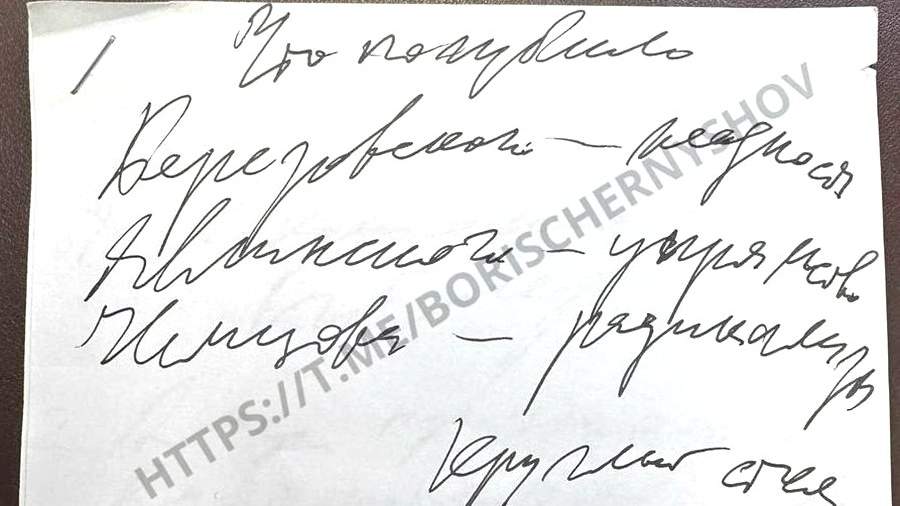 1 Что погубило
Березовского — жадность
Явлинского — упрямство
Немцова — радикализм
Круглый стол
HTTPS://T.ME/BORISCHERNYSHOV